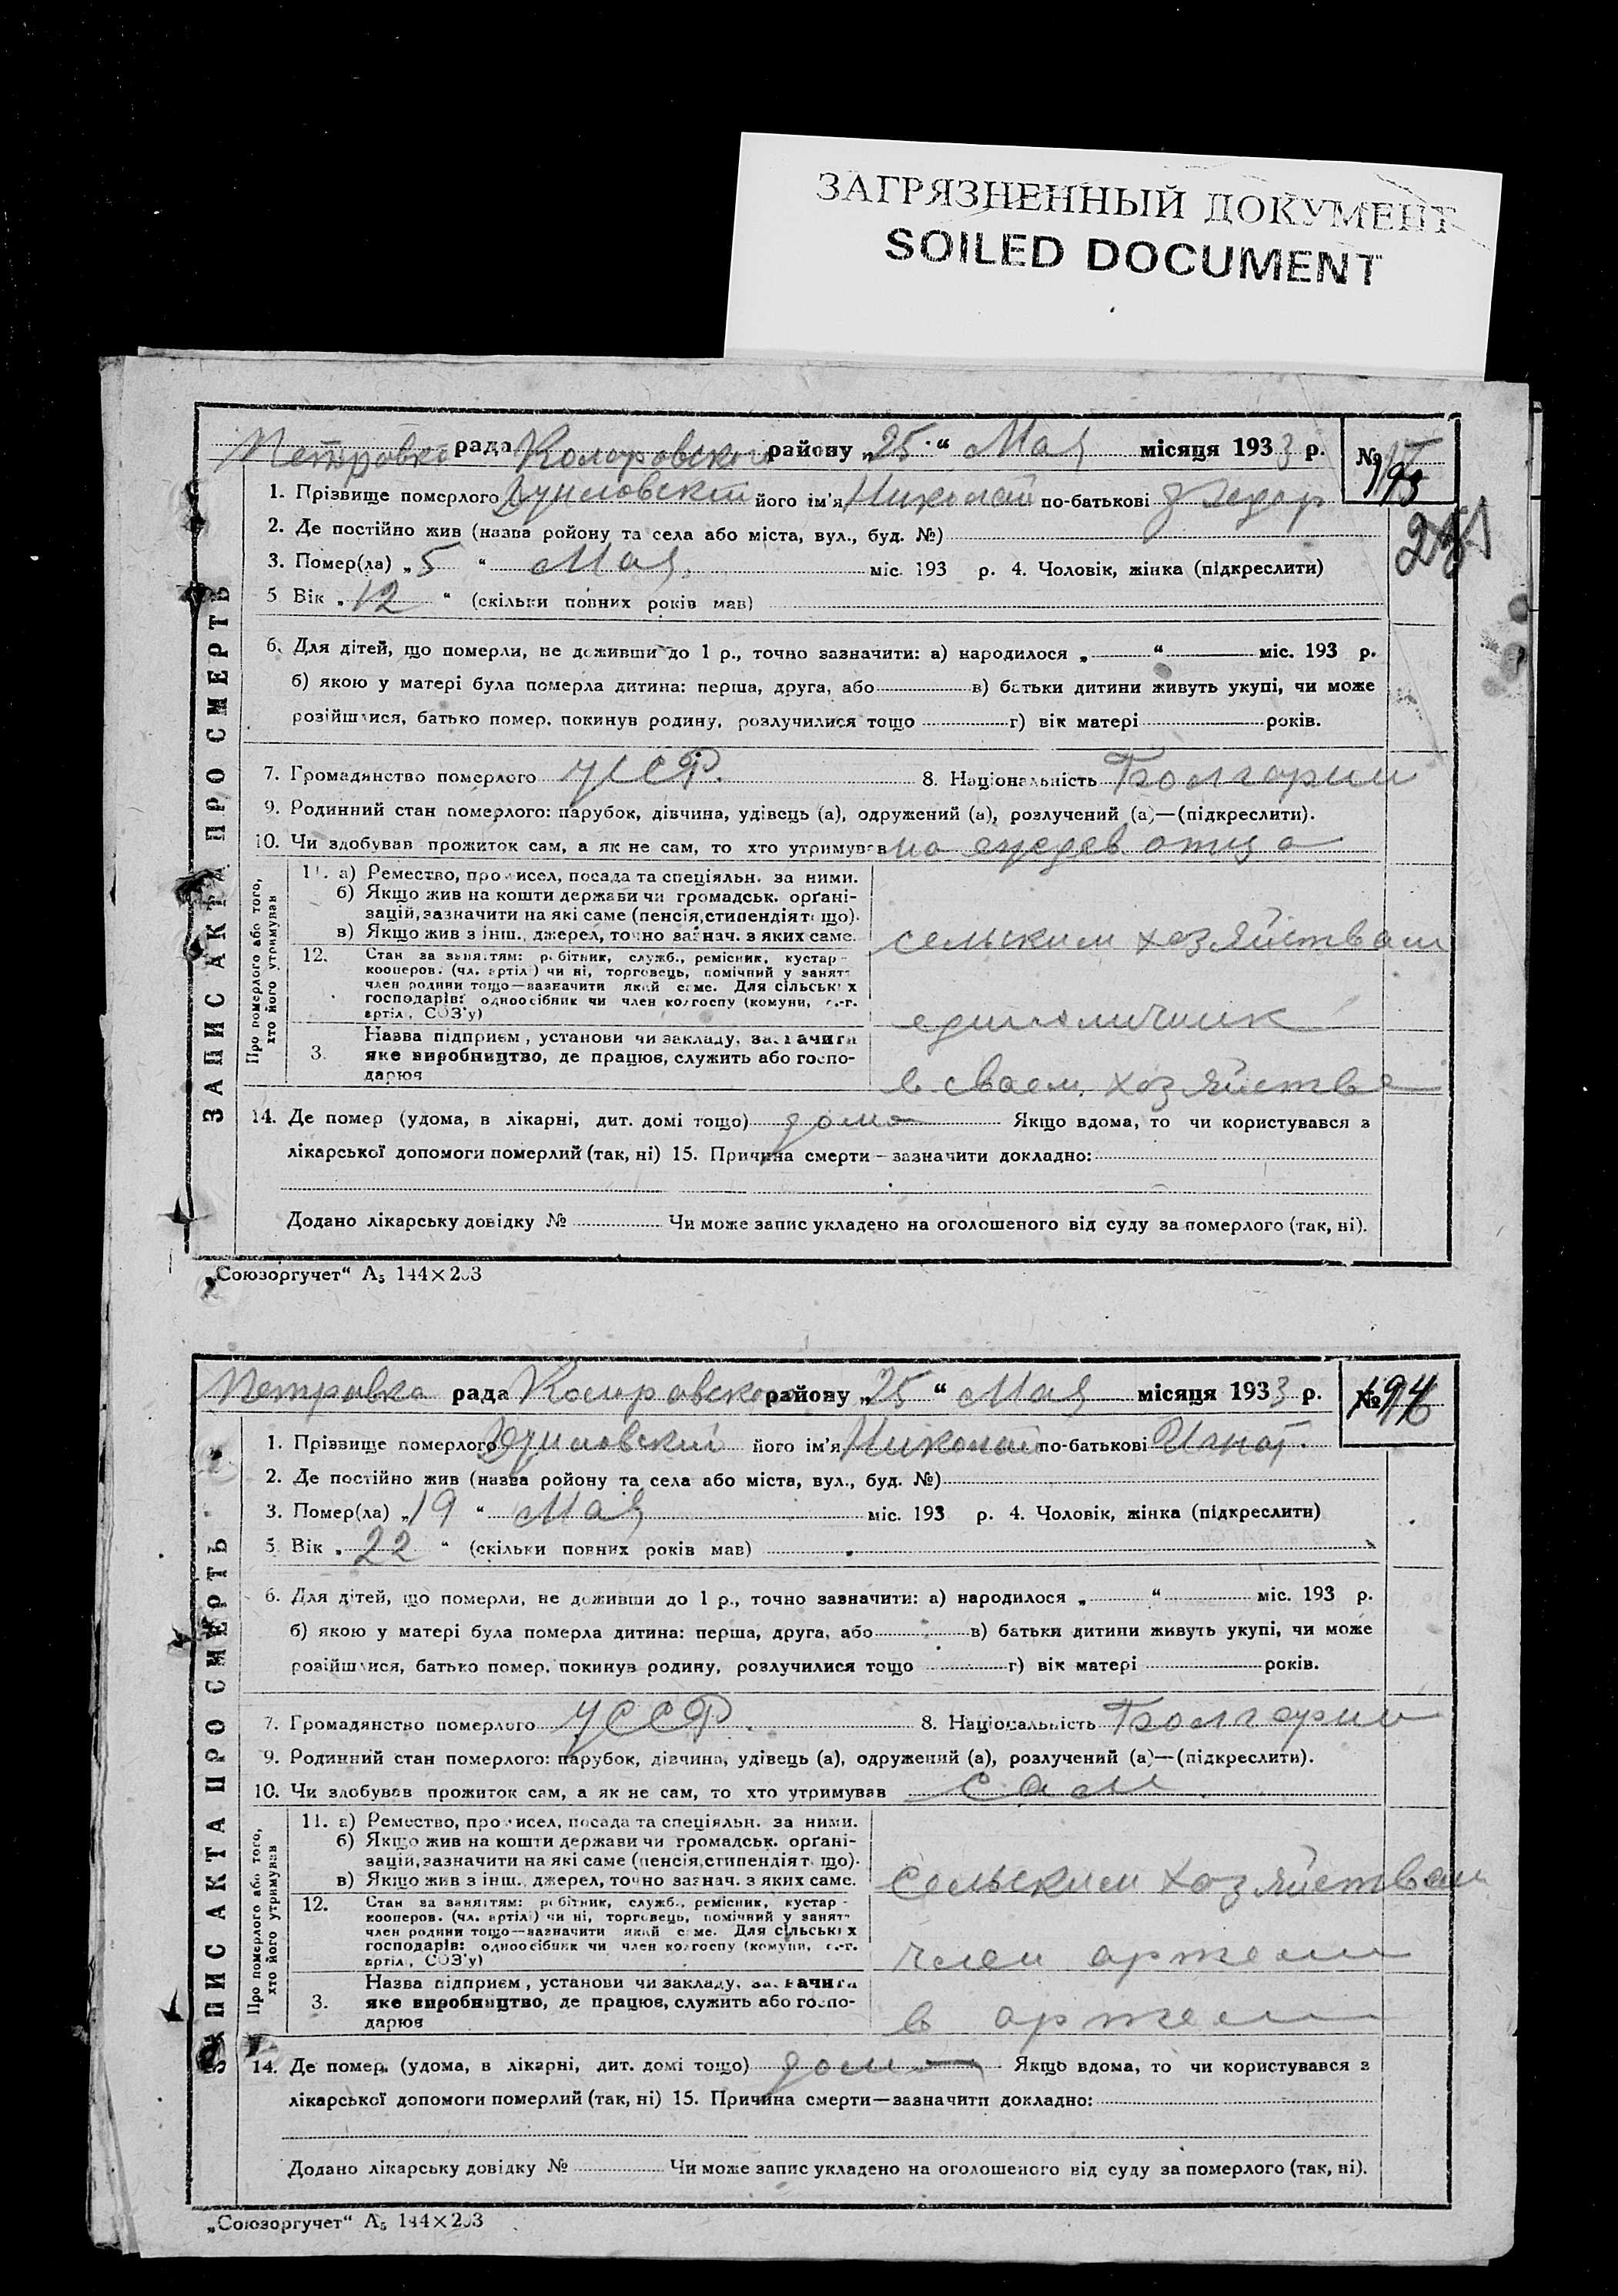 ЗАГРЯЗНЕННЫЙ ДОКУМЕНТ
SOILED DOCUMENT
Петровка рада Коларовского району „25“ Мая місяця 1933 р. № 193
1. Прізвище померлого його ім'я Николай по-батькові
2. Де постійно жив (назва ройону та села або міста, вул., буд. №)
3. Помер(ла) „5“ Мая міс. 193 р. 4. Чоловік, жінка (підкреслити)
5 Вік „12“ (скільки повних років мав)
6. Для дітей, що померли, не доживши до 1 р., точно зазначити: а) народилося „ “ міс. 193 р.
б) якою у матері була померла дитина: перша, друга, або в) батьки дитини живуть укупі, чи може
розійшлися, батько помер, покинув родину, розлучилися тощо г) вік матері років.
7. Громадянство померлого УССР. 8. Національність Болгарин
9. Родинний стан померлого: парубок, дівчина, удівець (а), одружений (а), розлучений (а)—(підкреслити).
10. Чи здобував прожиток сам, а як не сам, то хто утримував на отца
ЗАПИС АКТА ПРО СМЕРТЬ
Про померлого або того, хто його утримував
11. а) Ремество, промисел, посада та спеціяльн. за ними.
б) Якщо жив на кошти держави чи громадськ. орґані-
зацій, зазначити на які саме (пенсія, стипендія тощо).
в) Якщо жив з інш., джерел, точно зазнач. з яких саме.
сельским хозяйствам
12. Стан за заняттям: робітник, служб., ремісник, кустар-
кооперов. (чл. артілі) чи ні, торговець, помічний у занятт
член родини тощо—зазначити який саме. Для сільських
господарів: одноосібник чи член колгоспу (комуни, с.-г.
артілі, СОЗ'у)
единоличник
3. Назва підприєм., установи чи закладу, зазначити
яке виробництво, де працює, служить або госпо-
дарює
в своем хозяйстве
14. Де помер (удома, в лікарні, дит. домі тощо) дома Якщо вдома, то чи користувався з
лікарської допомоги померлий (так, ні) 15. Причина смерти—зазначити докладно:
Додано лікарську довідку № Чи може запис укладено на оголошеного від суду за померлого (так, ні).
„Союзоргучет“ А₅ 144×203
Петровка рада Коларовского району „25“ Мая місяця 1933 р. № 194
1. Прізвище померлого його ім'я Николай по-батькові Игнат.
2. Де постійно жив (назва ройону та села або міста, вул., буд. №)
3. Помер(ла) „19“ Мая міс. 193 р. 4. Чоловік, жінка (підкреслити)
5 Вік „22“ (скільки повних років мав)
6. Для дітей, що померли, не доживши до 1 р., точно зазначити: а) народилося „ “ міс. 193 р.
б) якою у матері була померла дитина: перша, друга, або в) батьки дитини живуть укупі, чи може
розійшлися, батько помер, покинув родину, розлучилися тощо г) вік матері років.
7. Громадянство померлого УССР. 8. Національність Болгарин
9. Родинний стан померлого: парубок, дівчина, удівець (а), одружений (а), розлучений (а)—(підкреслити).
10. Чи здобував прожиток сам, а як не сам, то хто утримував сам
ЗАПИС АКТА ПРО СМЕРТЬ
Про померлого або того, хто його утримував
11. а) Ремество, промисел, посада та спеціяльн. за ними.
б) Якщо жив на кошти держави чи громадськ. орґані-
зацій, зазначити на які саме (пенсія, стипендія тощо).
в) Якщо жив з інш., джерел, точно зазнач. з яких саме.
сельским хозяйствам
12. Стан за заняттям: робітник, служб., ремісник, кустар-
кооперов. (чл. артілі) чи ні, торговець, помічний у занятт
член родини тощо—зазначити який саме. Для сільських
господарів: одноосібник чи член колгоспу (комуни, с.-г.
артілі, СОЗ'у)
член артели
3. Назва підприєм., установи чи закладу, зазначити
яке виробництво, де працює, служить або госпо-
дарює
в артели
14. Де помер. (удома, в лікарні, дит. домі тощо) дома Якщо вдома, то чи користувався з
лікарської допомоги померлий (так, ні) 15. Причина смерти—зазначити докладно:
Додано лікарську довідку № Чи може запис укладено на оголошеного від суду за померлого (так, ні).
„Союзоргучет“ А₅ 144×203